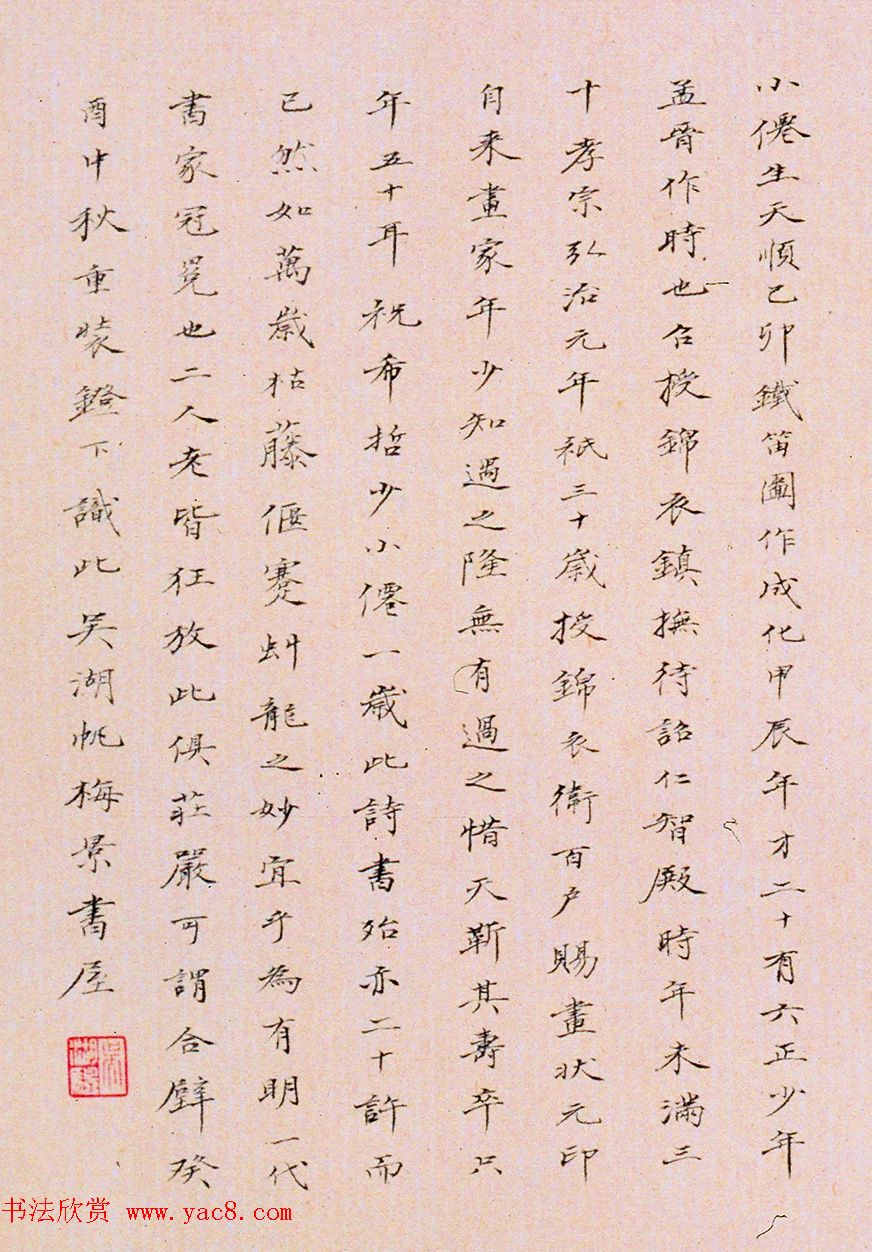 小僊生天順己卯鐵笛圖作成化甲辰年才二十有六正少年
孟晉作時也召授錦衣鎮撫待詔仁智殿時年未滿三
十孝宗弘治元年祇三十歲授錦衣衛百户賜畫狀元印
自来畫家年少知遇之隆無有過之惜天靳其壽卒只
年五十耳祝希哲少小僊一歲此詩書殆亦二十許而
已然如萬歲枯藤偃蹇虯龍之妙宜乎為有明一代
書家冠冕也二人老皆狂放此俱莊嚴可謂合璧癸
酉中秋重装鐙下識此吴湖帆梅景書屋
书法欣赏 www.yac8.com